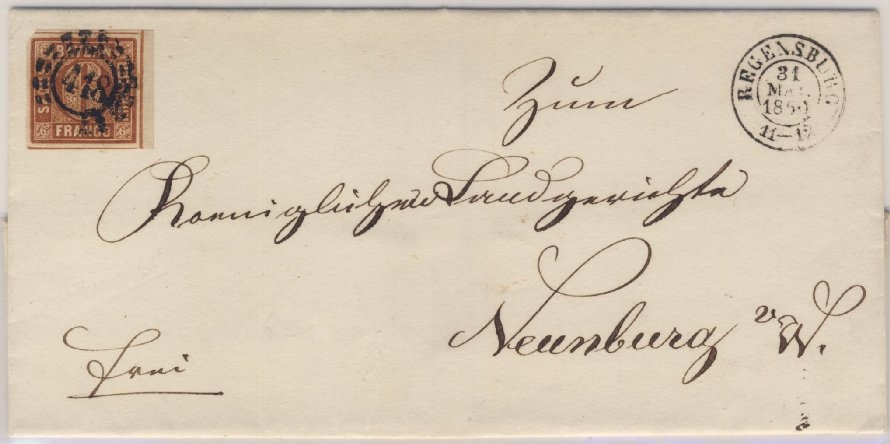 FRANCO
REGENSBURG
31
11-12
Zum
Koeniglichen Landgerichte
Neunburg v. W.
frei